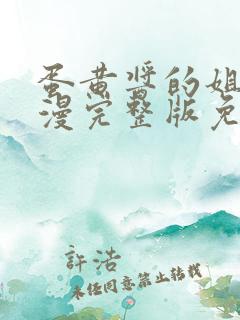 蛋黄酱的姐
漫完整版免
許浩
未经同意禁止转载